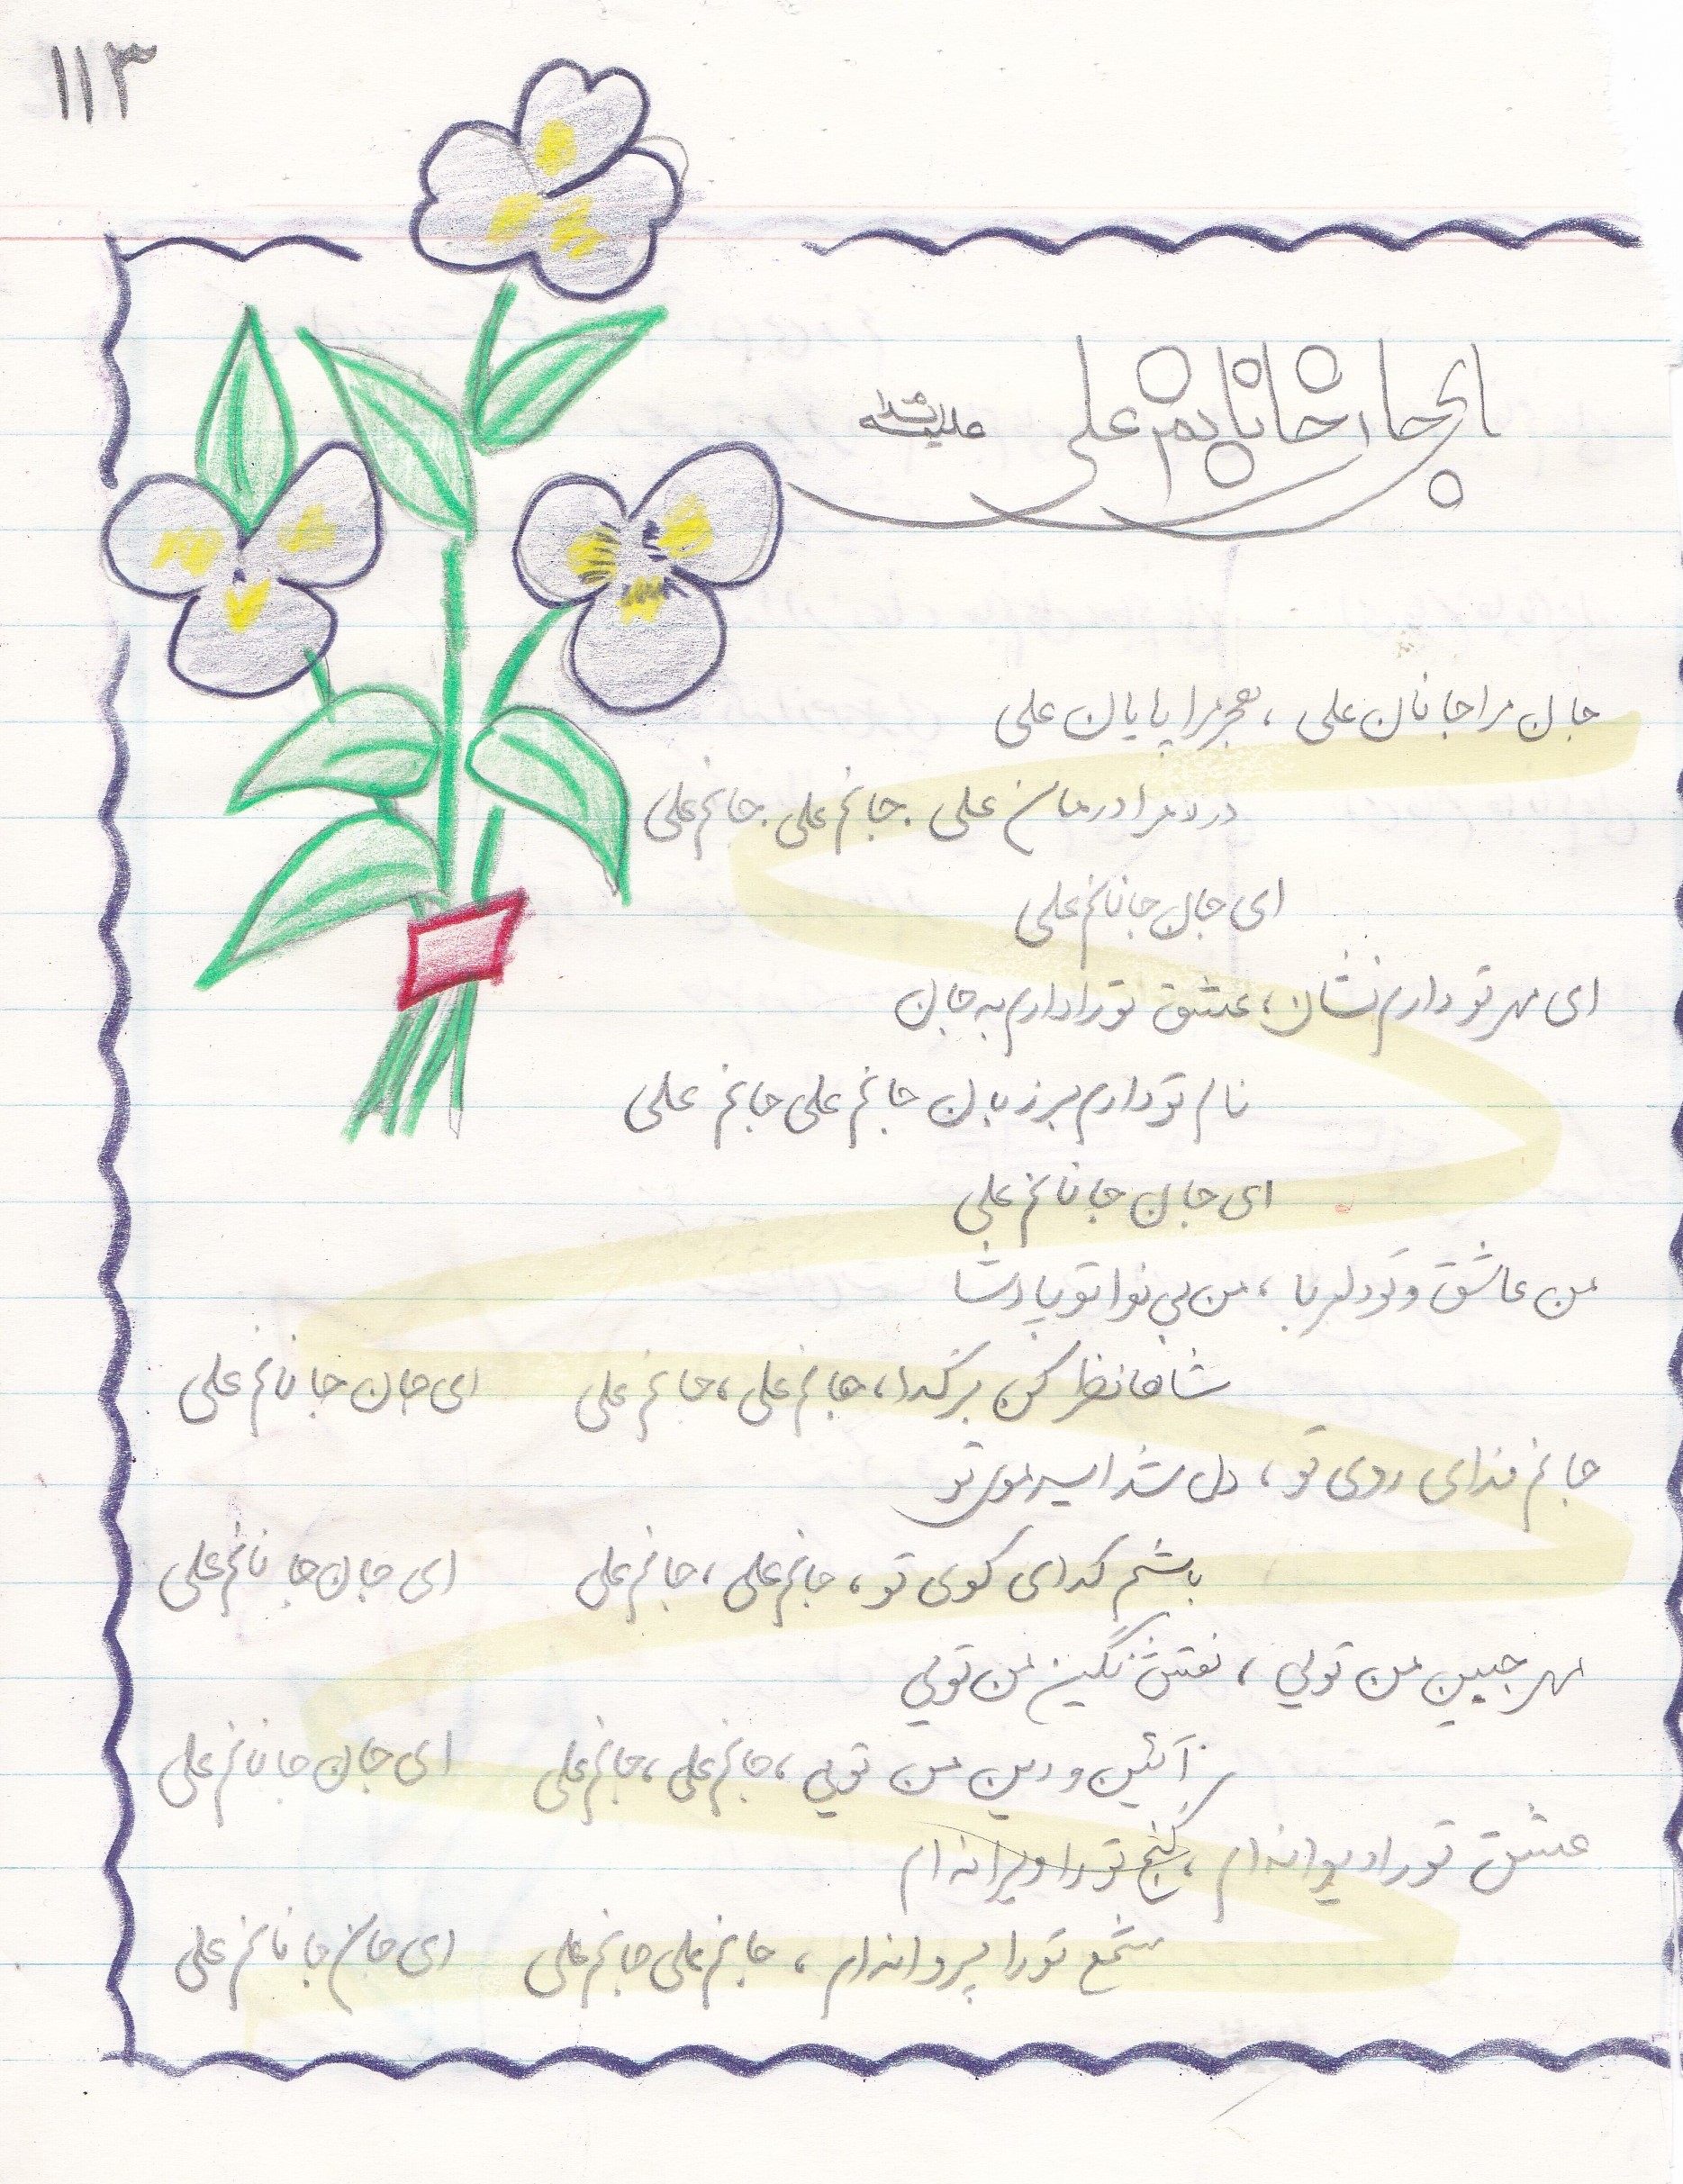 ۱۱۳
ای جان جانانم علی علیه السلام
جان مرا جانان علی ، هجر مرا پایان علی
درد مرا درمان علی . جانم علی . جانم علی
ای جان جانانم علی
ای مهر تو دارم نشان ، عشق تو را دارم به جان
نام تو دارم بر زبان جانم علی جانم علی
ای جان جانانم علی
من عاشق و تو دلربا ، من بی نوا تو پادشا
شاها نظر کن بر گدا ، جانم علی ، جانم علی ای جان جانانم علی
جانم فدای روی تو ، دل شد اسیر موی تو
باشم گدای کوی تو ، جانم علی ، جانم علی ای جان جانانم علی
مهر جبین من تویی ، نقش نگین من تویی
آئین و دین من تویی ، جانم علی ، جانم علی ای جان جانانم علی
عشق تو را دیوانه ام ، گنج تو را ویرانه ام
شمع تو را پروانه ام ، جانم علی جانم علی ای جان جانانم علی